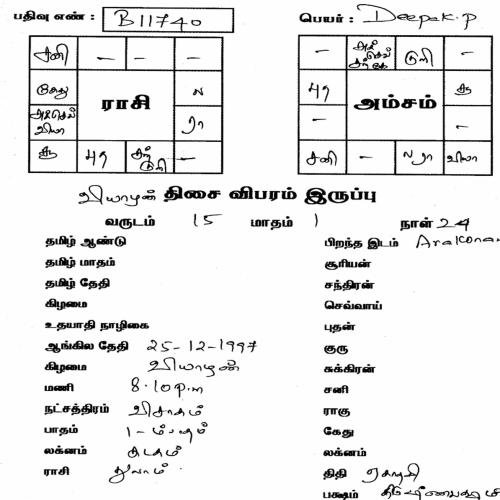 பதிவு எண் : B11740 பெயர் : Deepak.P
சனி - - -
கேது ல
ராசி
ரா
சூ -
-
அம்சம்
-
-
சனி - ல ரா
வியாழன் திசை விபரம் இருப்பு
வருடம் 15 மாதம் 1 நாள் 24
தமிழ் ஆண்டு பிறந்த இடம் Arakonam
தமிழ் மாதம் சூரியன்
தமிழ் தேதி சந்திரன்
கிழமை செவ்வாய்
உதயாதி நாழிகை புதன்
ஆங்கில தேதி 25-12-1997 குரு
கிழமை வியாழன் சுக்கிரன்
மணி 8.10 p.m சனி
நட்சத்திரம் விசாகம் ராகு
பாதம் 1-ம் பாதம் கேது
லக்னம் கடகம் லக்னம்
ராசி துலாம் திதி ஏகாதசி
பக்ஷம்